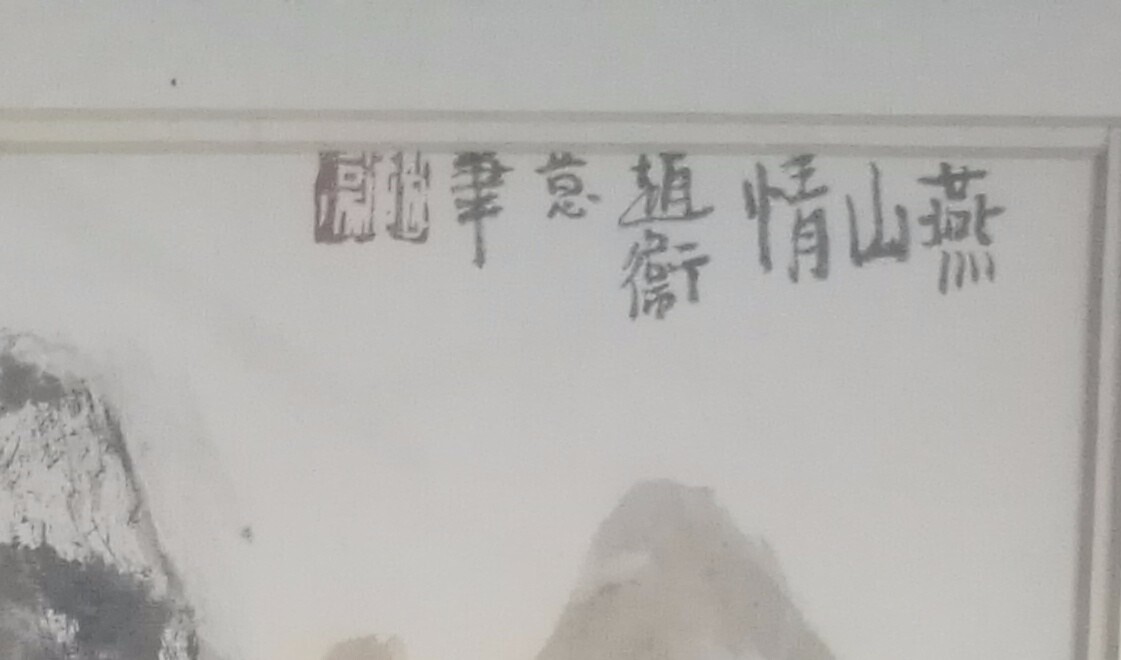 燕山情
趙衛
意筆